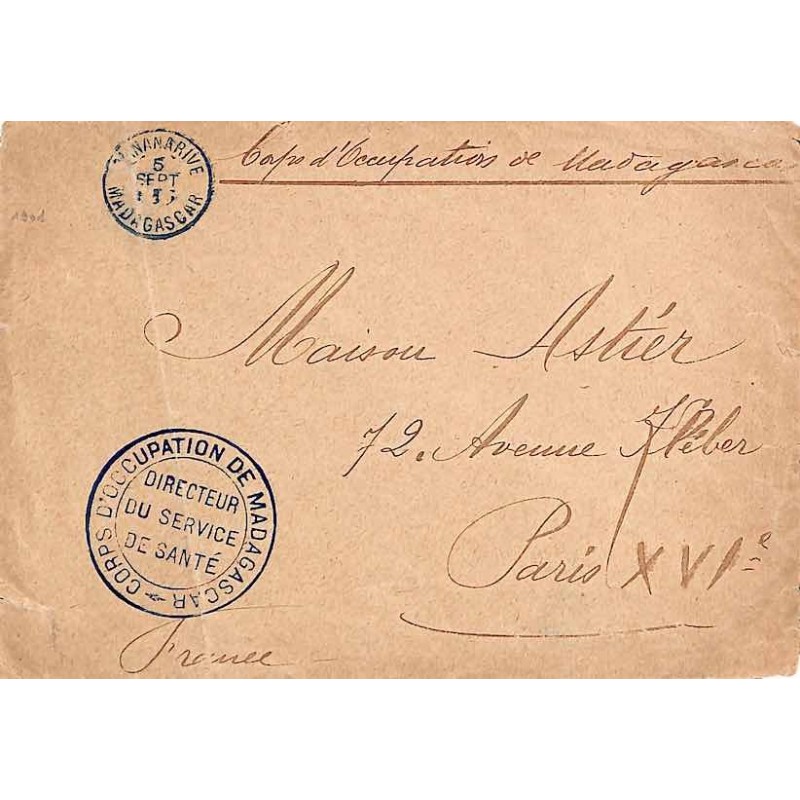 TANANARIVE
5
SEPT
MADAGASCAR
Corps d'Occupation de Madagascar
1901
Maison Astier
72. Avenue Kléber
Paris XVIe
CORPS D'OCCUPATION DE MADAGASCAR
DIRECTEUR
DU SERVICE
DE SANTÉ
France